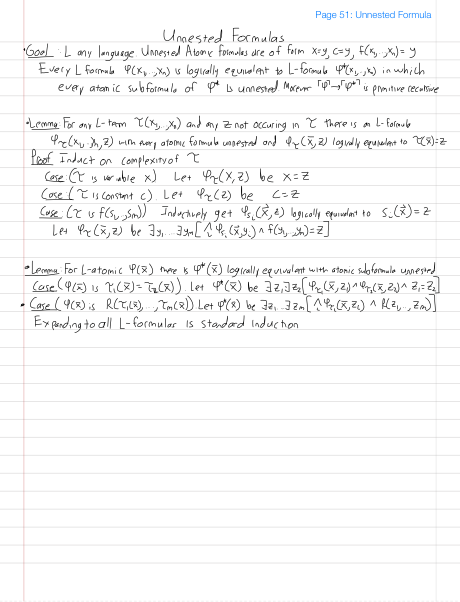 Page 51: Unnested Formula
Unnested Formulas
• Goal: L any language. Unnested Atomic formulas are of form x=y, c=y, f(x₁,...,xₙ)=y
Every L formula φ(x₁,...,xₙ) is logically equivalent to L-formula φ*(x₁,...,xₙ) in which
every atomic subformula of φ* is unnested Moreover ⌜φ⌝→⌜φ*⌝ is primitive recursive
• Lemma: For any L-term τ(x₁,...,xₙ) and any z not occuring in τ there is an L-formula
φ_τ(x₁,...,xₙ,z) with every atomic formula unnested and φ_τ(x̄,z) logically equivalent to τ(x̄)=z
Proof Induct on complexity of τ
Case: (τ is variable x) Let φ_τ(x,z) be x=z
Case: (τ is constant c). Let φ_τ(z) be c=z
Case: (τ is f(s₁,...,sₘ)) Inductively get φ_sᵢ(x̄,z) logically equivalent to sᵢ(x̄)=z
Let φ_τ(x̄,z) be ∃y₁...∃yₘ[⋀ᵢφ_sᵢ(x̄,yᵢ)∧f(y₁,...,yₘ)=z]
• Lemma: For L-atomic φ(x̄) there is φ*(x̄) logically equivalent with atomic subformula unnested
Case (φ(x̄) is τ₁(x̄)=τ₂(x̄)). Let φ*(x̄) be ∃z₁∃z₂[φ_τ₁(x̄,z₁)∧φ_τ₂(x̄,z₂)∧z₁=z₂]
• Case (φ(x̄) is R(τ₁(x̄),...,τₘ(x̄)) Let φ*(x̄) be ∃z₁...∃zₘ[⋀φ_τᵢ(x̄,zᵢ)∧R(z₁,...,zₘ)]
Expanding to all L-formulas is standard induction